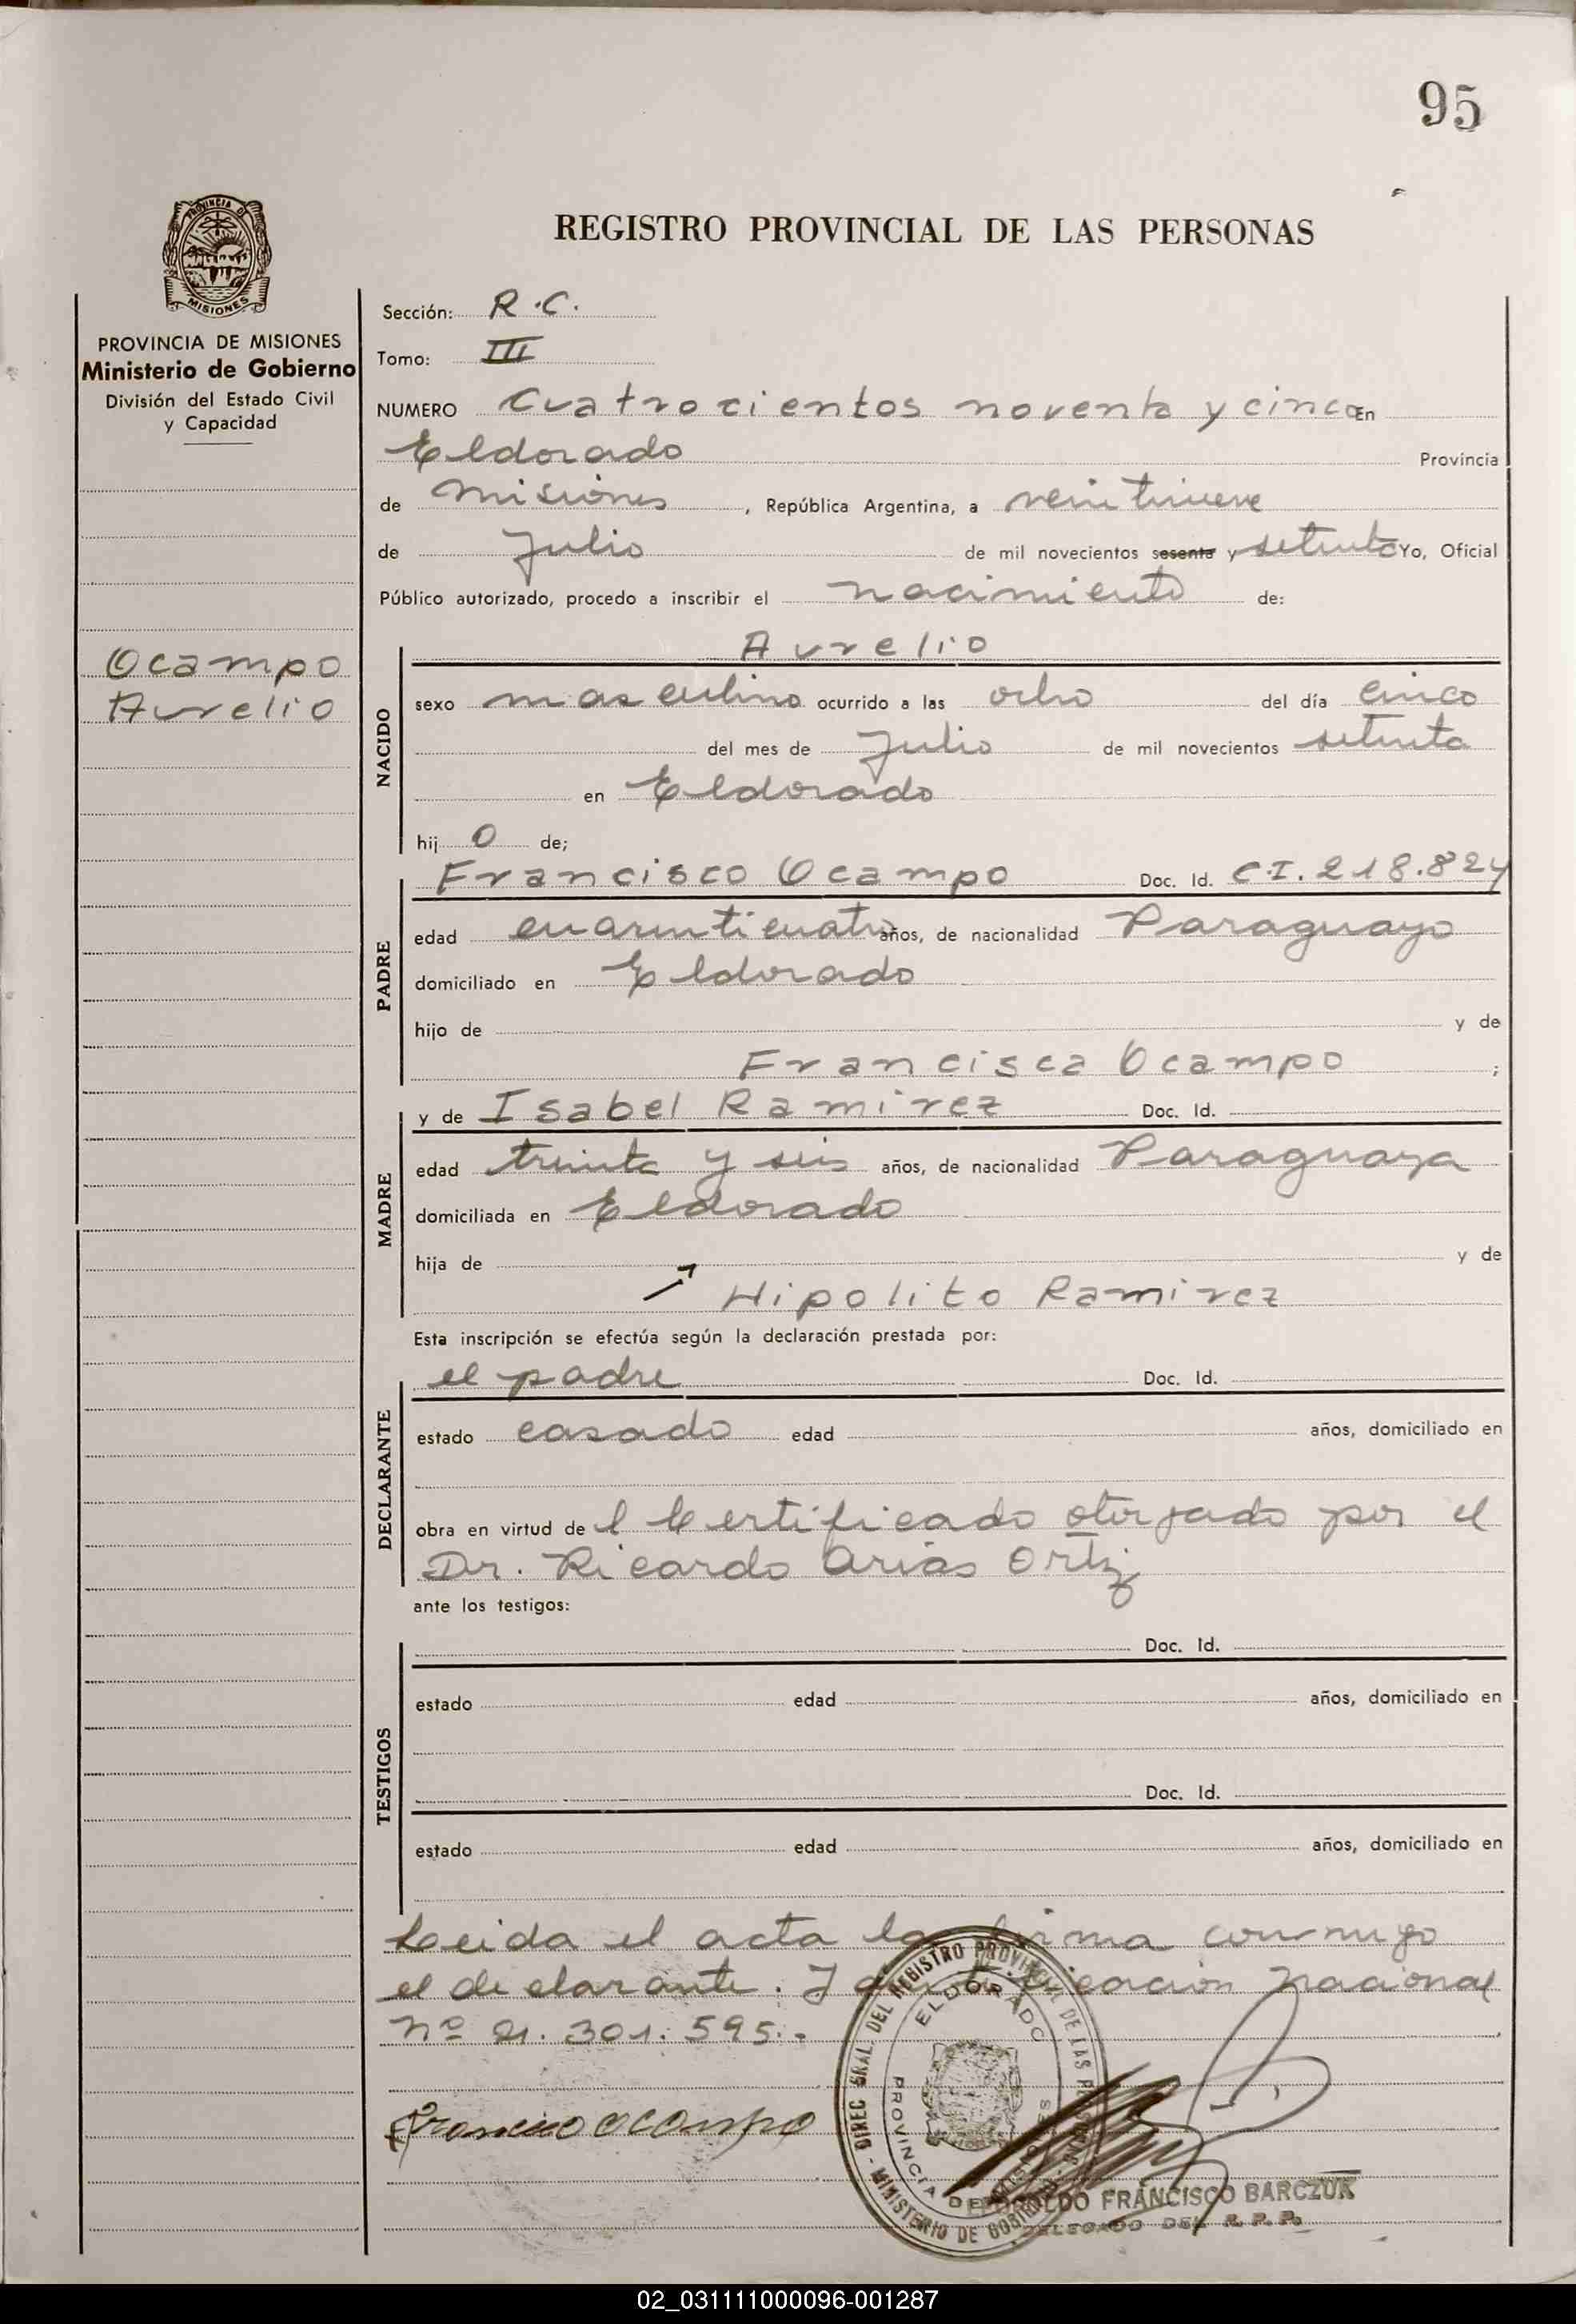 95
REGISTRO PROVINCIAL DE LAS PERSONAS
PROVINCIA DE MISIONES
MISIONES
PROVINCIA DE MISIONES
Ministerio de Gobierno
División del Estado Civil
y Capacidad
Ocampo
Aurelio
Sección: R.C.
Tomo: III
NUMERO Cuatrocientos noventa y cinco En
Eldorado Provincia
de Misiones, República Argentina, a veintinueve
de Julio de mil novecientos sesenta y setenta Yo, Oficial
Público autorizado, procedo a inscribir el nacimiento de:
Aurelio
NACIDO
sexo masculino ocurrido a las ocho del día cinco
del mes de Julio de mil novecientos setenta
en Eldorado
hij o de;
Francisco Ocampo Doc. Id. C.I. 218.824
PADRE
edad cuarenticuatro años, de nacionalidad Paraguayo
domiciliado en Eldorado
hijo de y de
Francisca Ocampo ;
y de Isabel Ramirez Doc. Id.
MADRE
edad treinta y seis años, de nacionalidad Paraguaya
domiciliada en Eldorado
hija de y de
Hipolito Ramirez
Esta inscripción se efectúa según la declaración prestada por:
el padre Doc. Id.
DECLARANTE
estado casado edad años, domiciliado en
obra en virtud de l Certificado otorgado por el
Dr. Ricardo Arias Ortiz
ante los testigos:
Doc. Id.
TESTIGOS
estado edad años, domiciliado en
Doc. Id.
estado edad años, domiciliado en
Leida el acta la firma conmigo
el declarante. Identificación Nacional
Nº 21.301.595.-
Francisco Ocampo
DIREC GRAL. DEL REGISTRO PROVINCIAL DE LAS PERSONAS - MINISTERIO DE GOBIERNO
ELDORADO
PROVINCIA DE MISIONES
FRANCISCO BARCZUK
DELEGADO DEL R.P.P.
02_031111000096-001287